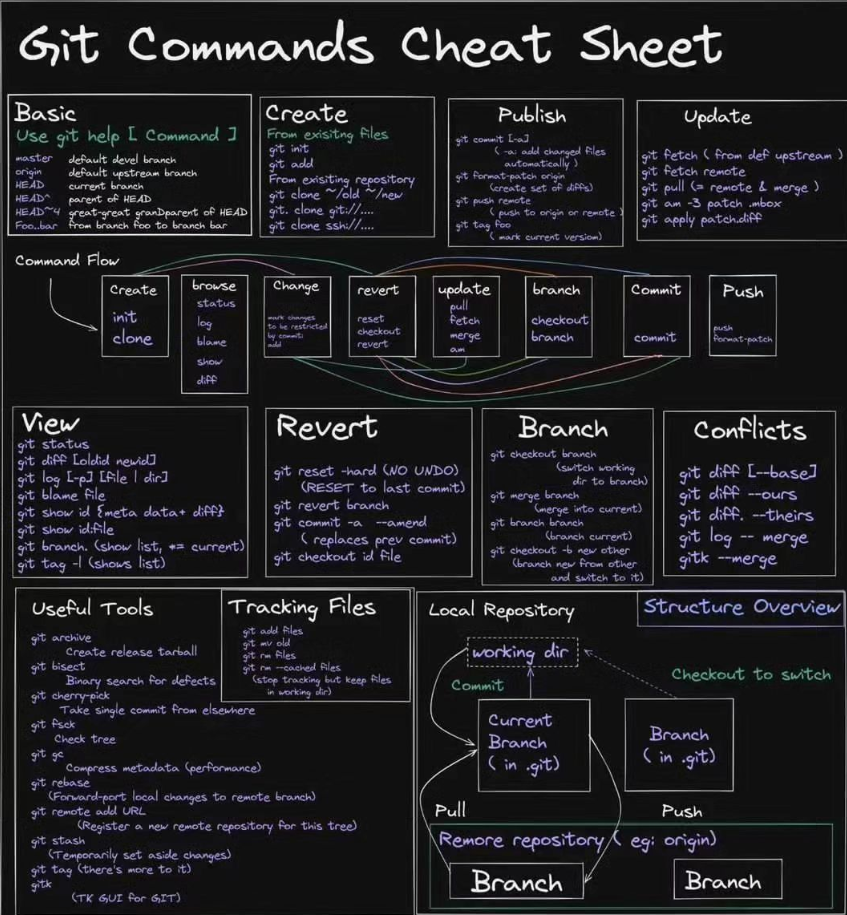 Git Commands Cheat Sheet
Basic
Use git help [ Command ]
master default devel branch
origin default upstream branch
HEAD current branch
HEAD^ parent of HEAD
HEAD~4 great-great granDparent of HEAD
Foo..bar from branch foo to branch bar
Create
From exisitng files
git init
git add
From exisiting repository
git clone ~/old ~/new
git. clone git://....
git clone ssh://....
Publish
git commit [-a]
( -a: add changed files
automatically )
git format-patch origin
(create set of diffs)
git push remote
( push to origin or remote )
git tag foo
( mark current version)
Update
git fetch ( from def upstream )
git fetch remote
git pull (= remote & merge )
git am -3 patch .mbox
git apply patch.diff
Command Flow
Create
init
clone
browse
status
log
blame
show
diff
Change
mark changes
to be restricted
by commit:
add
revert
reset
checkout
revert
update
pull
fetch
merge
am
branch
checkout
branch
Commit
commit
Push
push
format-patch
View
git status
git diff [oldid newid]
git log [-p] [file | dir]
git blame file
git show id {meta data+ diff}
git show id:file
git branch. (show list, *= current)
git tag -l (shows list)
Revert
git reset -hard (NO UNDO)
(RESET to last commit)
git revert branch
git commit -a --amend
( replaces prev commit)
git checkout id file
Branch
git checkout branch
(switch working
dir to branch)
git merge branch
(merge into current)
git branch branch
(branch current)
git checkout -b new other
(branch new from other
and switch to it)
Conflicts
git diff [--base]
git diff --ours
git diff. --theirs
git log -- merge
gitk --merge
Useful Tools
git archive
Create release tarball
git bisect
Binary search for defects
git cherry-pick
Take single commit from elsewhere
git fsck
Check tree
git gc
Compress metadata (performance)
git rebase
(Forward-port local changes to remote branch)
git remote add URL
(Register a new remote repository for this tree)
git stash
(Temporarily set aside changes)
git tag (there's more to it)
gitk
(TK GUI for GIT)
Tracking Files
git add files
git mv old
git rm files
git rm --cached files
(stop tracking but keep files
in working dir)
Local Repository
Structure Overview
working dir
Commit
Checkout to switch
Current
Branch
( in .git)
Branch
( in .git)
Pull
Push
Remore repository ( eg: origin)
Branch
Branch